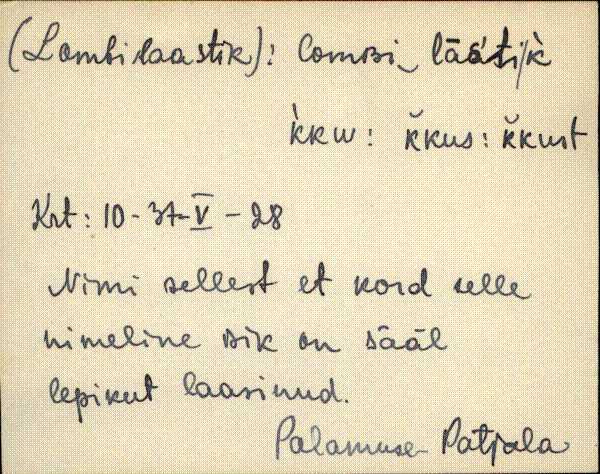 (Lombilaastik): lombi_ lāās̀ti/k̀
k̀kw: k̆kus: k̆kust
Krt: 10-37-V-28
Nimi sellest et kord selle
nimeline isik on sääl
lepikut laasinud.
Palamuse Patjala